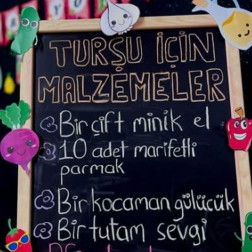 TURŞU İÇİN
MALZEMELER
Bir çift minik el
10 adet marifetli
parmak
Bir kocaman gülücük
Bir tutam sevgi